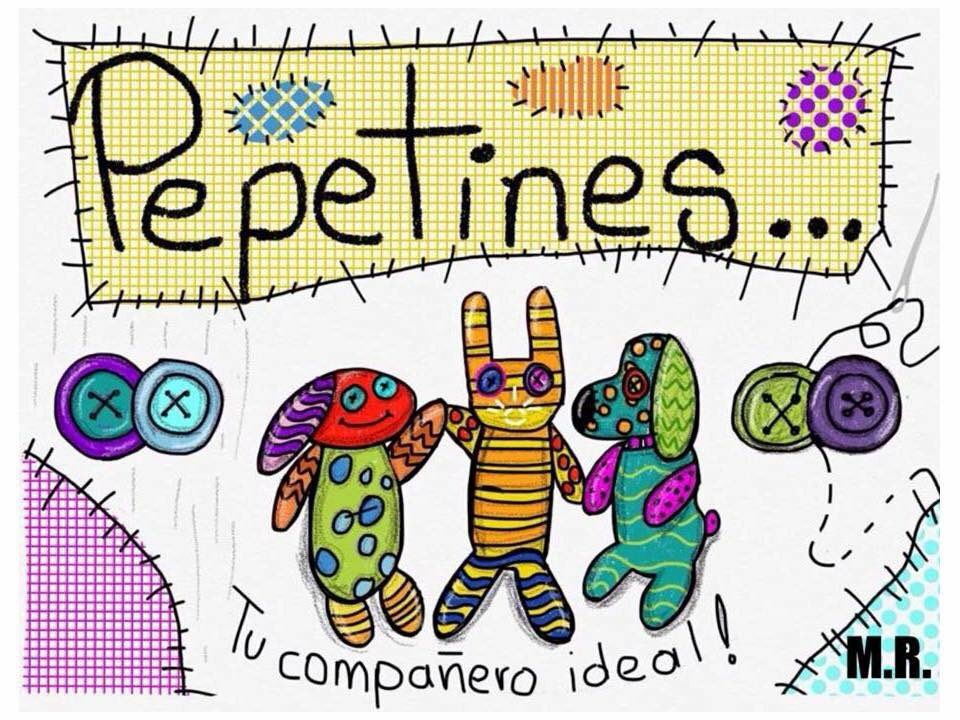 Pepetines...
Tu compañero ideal!
M.R.